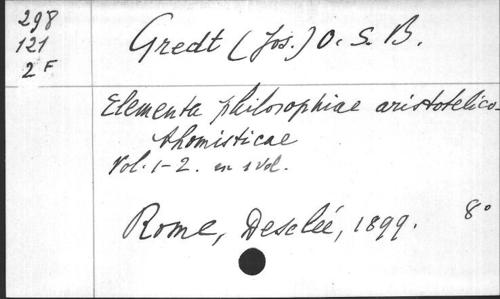 298
121
2 F
Gredt (Jos.) O. S. B.
Elementa philosophiae aristotelico-
thomisticae
Vol. 1-2. en 1 vol.
Rome, Desclée, 1899. 8°